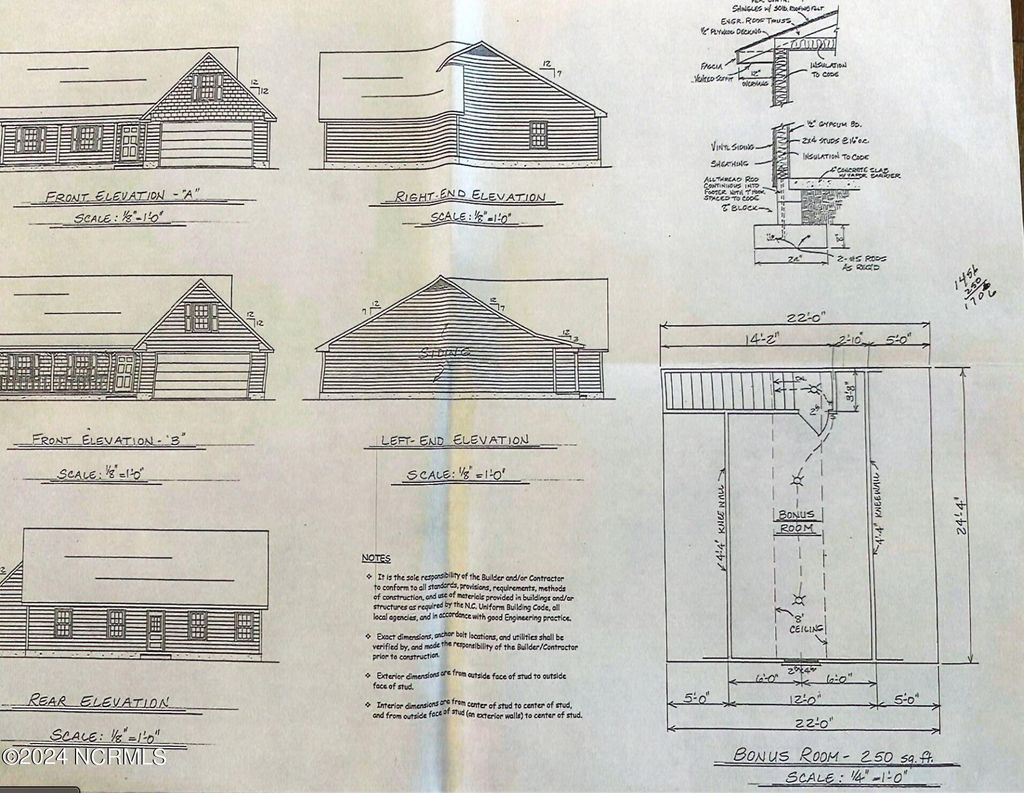 SHINGLES W/ 30LB. ROOFING FELT
ENGR. ROOF TRUSS
½" PLYWOOD DECKING
FASCIA
VENTED SOFFIT
12"
OVERHANG
INSULATION
TO CODE
12
12
12
7
FRONT ELEVATION - "A"
SCALE: ⅛"=1'-0"
RIGHT-END ELEVATION
SCALE: ⅛"=1'-0"
½" GYPSUM BD.
2X4 STUDS @ 16" O.C.
VINYL SIDING
INSULATION TO CODE
SHEATHING
4" CONCRETE SLAB
W/ VAPOR BARRIER
ALL THREAD ROD
CONTINUOUS INTO
FOOTER WITH 7" HOOK
SPACED TO CODE
8" BLOCK
8"
24"
2-#5 RODS
AS REQ'D
1456
250
1706
12
12
7
12
12
7
12
3
SIDING
FRONT ELEVATION - "B"
SCALE: ⅛"=1'-0"
LEFT-END ELEVATION
SCALE: ⅛"=1'-0"
22'-0"
14'-2"
2'-10"
5'-0"
3'-8"
4'-4" KNEE WALL
BONUS
ROOM
4'-4" KNEEWALL
24'-4"
8'
CEILING
6'-0"
6'-0"
5'-0"
12'-0"
5'-0"
22'-0"
BONUS ROOM - 250 sq.ft.
SCALE: ¼"=1'-0"
12
REAR ELEVATION
SCALE: ⅛"=1'-0"
NOTES
❖ It is the sole responsibility of the Builder and/or Contractor
to conform to all standards, provisions, requirements, methods
of construction, and use of materials provided in buildings and/or
structures as required by the N.C. Uniform Building Code, all
local agencies, and in accordance with good Engineering practice.
❖ Exact dimensions, anchor bolt locations, and utilities shall be
verified by, and made the responsibility of the Builder/Contractor
prior to construction.
❖ Exterior dimensions are from outside face of stud to outside
face of stud.
❖ Interior dimensions are from center of stud to center of stud,
and from outside face of stud (on exterior walls) to center of stud.
©2024 NCRMLS